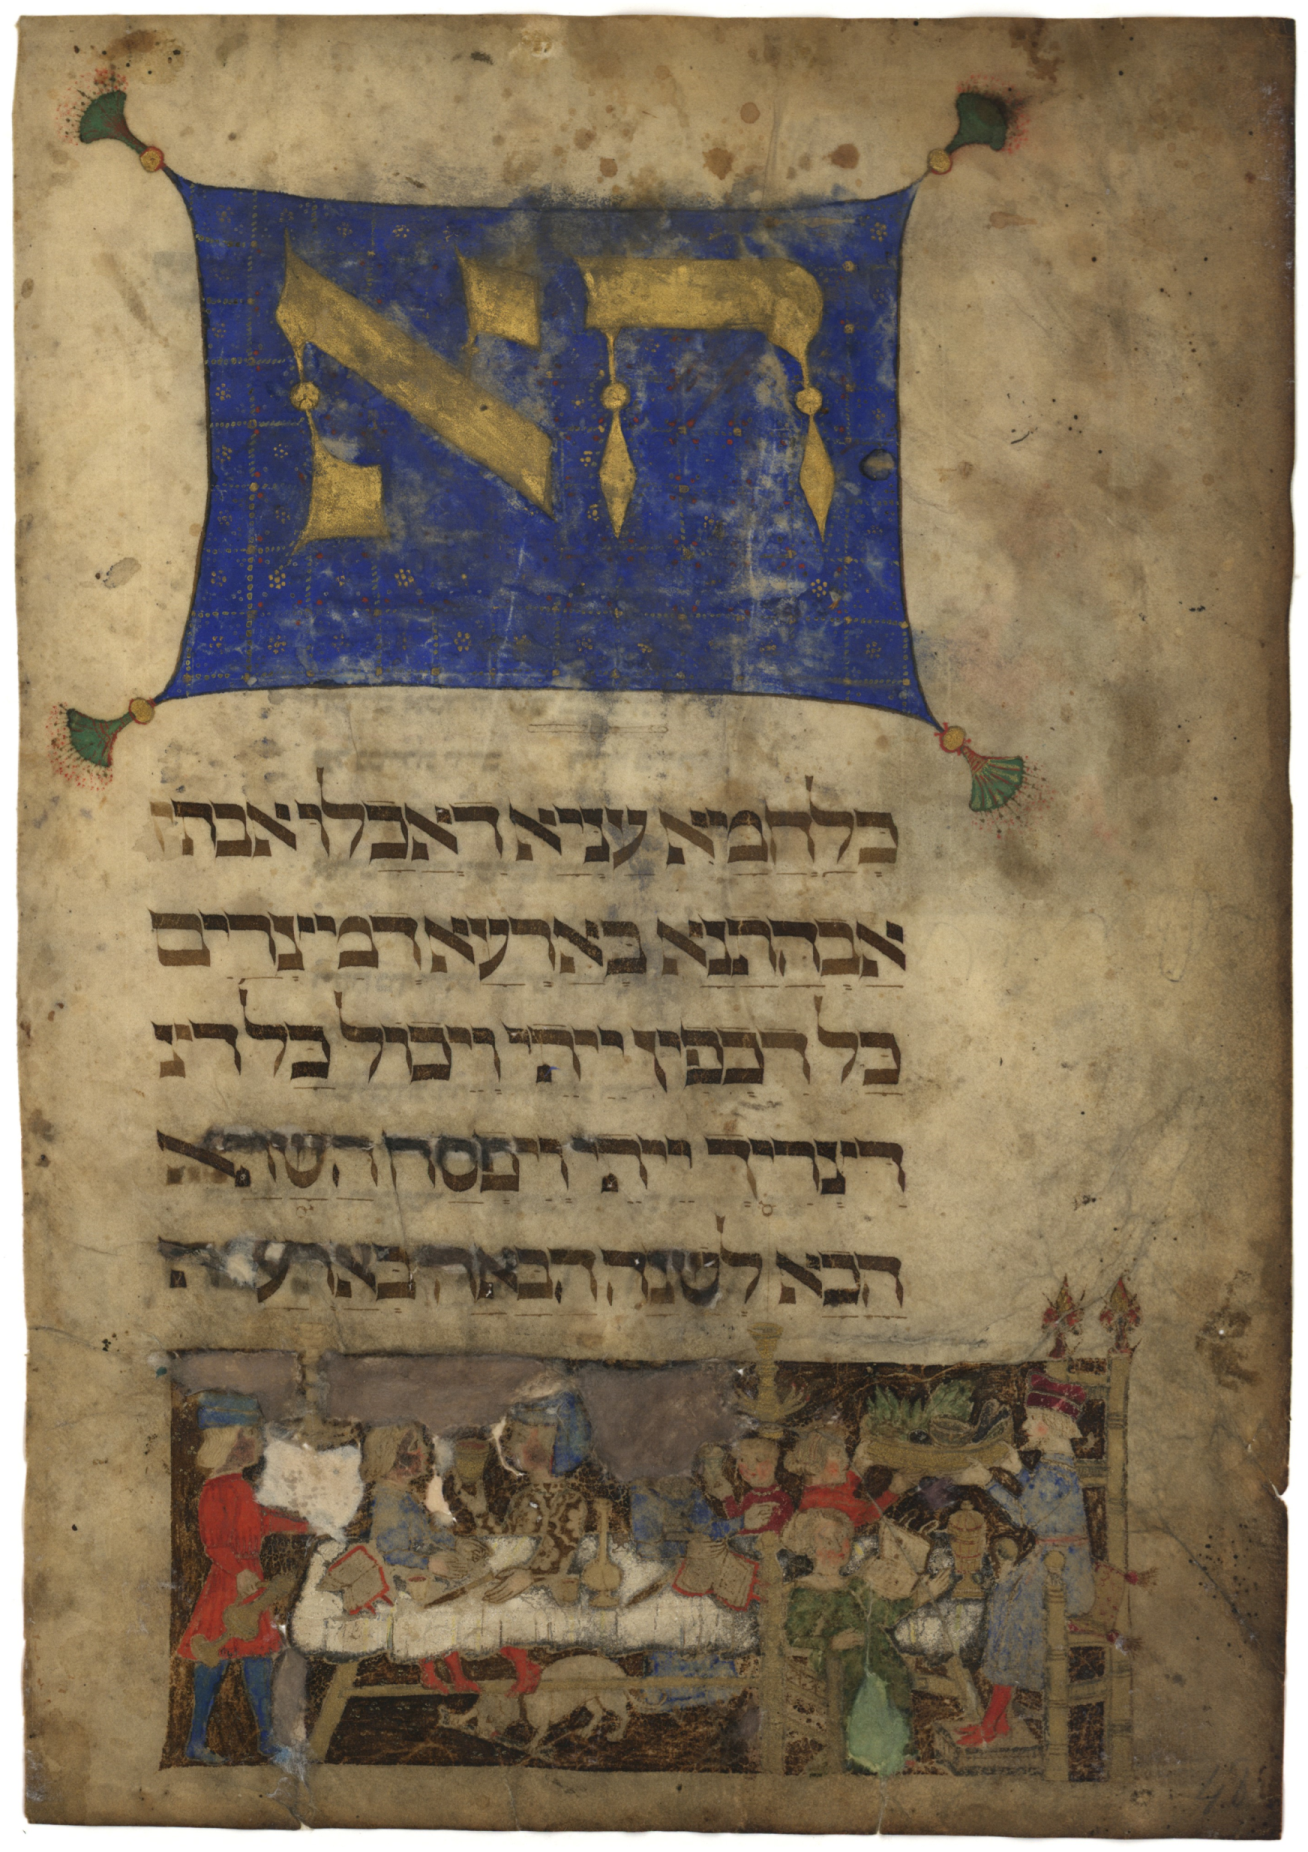 הא
כלחמא עניא דאכלו אבהתנ
אבהתנא בארעא דמצרים
כל דכפין ייתי ויכול כל דיצ
דיצריך ייתי ויפסח השתא
הכא לשנה הבאה בארעא